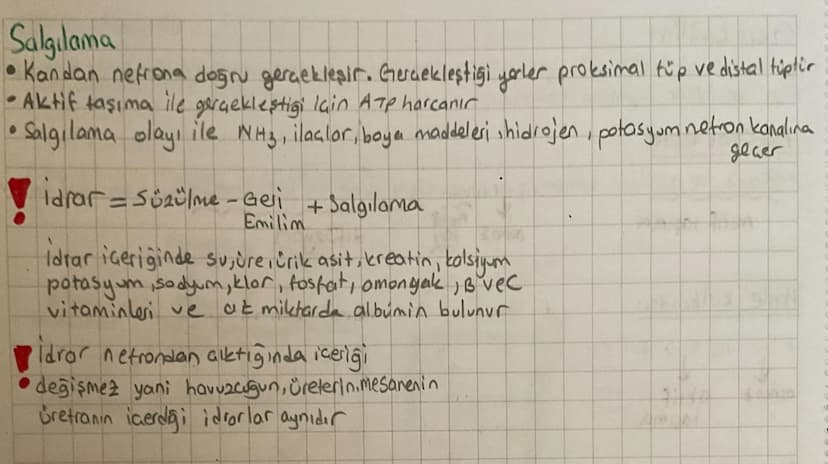 Salgılama
• Kandan nefrona doğru gerçekleşir. Gerçekleştiği yerler proksimal tüp ve distal tüptür
• Aktif taşıma ile gerçekleştiği için ATP harcanır
• Salgılama olayı ile NH3, ilaçlar, boya maddeleri, hidrojen, potasyum nefron kanalına
geçer
! İdrar = Süzülme - Geri + Salgılama
Emilim
İdrar içeriğinde su, üre, ürik asit, kreatin, kalsiyum
potasyum, sodyum, klor, fosfat, amonyak, B ve C
vitaminleri ve az miktarda albümin bulunur
! İdrar nefrondan çıktığında içeriği
değişmez yani havuzcuğun, üreterin, mesanenin
üretranın içerdiği idrarlar aynıdır